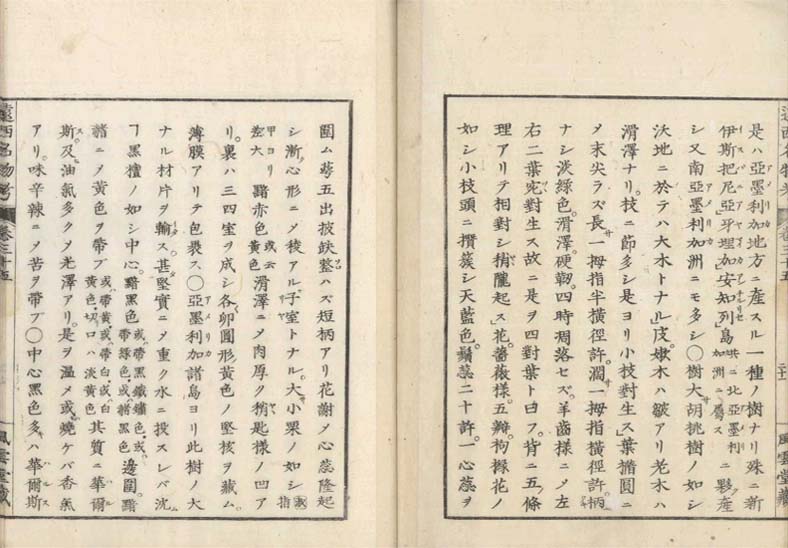 是ハ亞墨利加地方ニ産スル一種ノ樹ナリ殊ニ新
伊斯把尼亞牙埋加安知列島共ニ北亞墨利加洲ニ屬スニ夥産
シ又南亞墨利加洲ニモ多シ〇樹大胡桃樹ノ如シ
沃地ニ於テハ大木トナル皮嫩木ハ皺アリ老木ハ
滑澤ナリ。枝ニ節多シ是ヨリ小枝對生ス葉橢圓ニ
メ末尖ラズ長一拇指半橫徑許。濶一拇指橫徑許。柄
ナシ淡綠色。滑澤。硬靭。四時凋落セズ。羊齒樣ニメ左
右二葉宛對生ス故ニ是ヲ四對葉ト曰フ。背ニ五條
理アリテ相對シ稍隴起ス花薔薇樣。五瓣枸櫞花ノ
如シ小枝頭ニ攢簇シ天藍色。鬚蕊二十許。一心蕊ヲ
圍ム萼五出披鈌整ハズ短柄アリ花謝メ心蕊隆起
シ漸心形ニメ稜アル子室トナル。大小栗ノ如シ或指
甲ヨリ大黯赤色或云黄色滑澤ニメ肉厚ク稍匙樣ノ凹ア
リ。裏ハ三四室ヲ成シ各卵圓形黄色ノ堅核ヲ藏ム。
薄膜アリテ包裹ス〇亞墨利加諸島ヨリ此樹ノ大
ナル材片ヲ輸ス甚堅實ニメ重ク水ニ投スレバ沈
ヿ黑檀ノ如シ中心。黯黑色或帶黑鐵鏽色。或帶綠色。或褐黑色邊圍。黯
褐ニメ黄色ヲ帶ブ或帶黄。或帶白。或白黄色。切口ハ淡黄色其質ニ華爾
斯及油氣多クメ光澤アリ。是ヲ溫メ或燒ケバ香氣
アリ。味辛辣ニメ苦ヲ帶ブ〇中心黑色多ハ華爾斯
遠西名物考
卷三十五
風雲堂藏